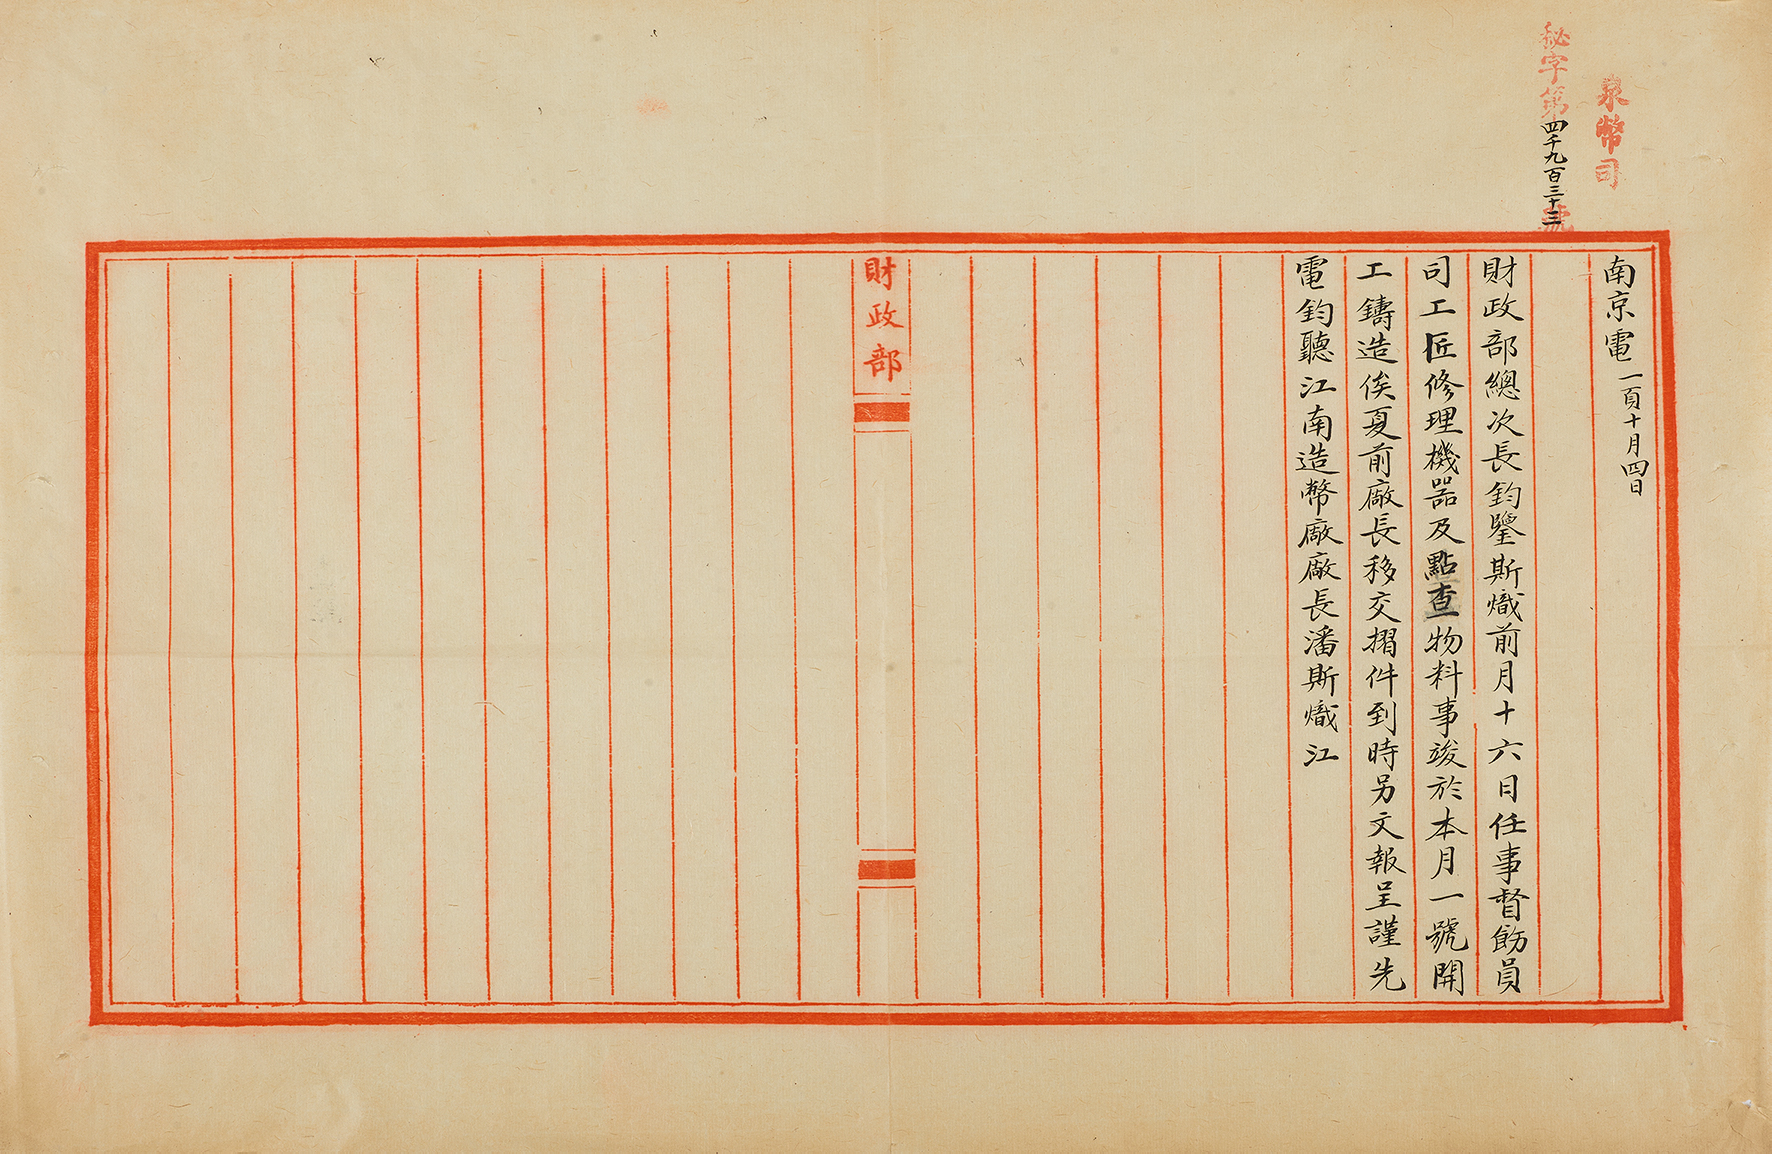 泉幣司
秘字第四千九百三十三號
南京電 一百 十月四日
財政部總次長鈞鑒斯熾前月十六日任事督飭員
司工匠修理機器及點查物料事竣於本月一號開
工鑄造俟夏前廠長移交摺件到時另文報呈謹先
電鈞聽江南造幣廠廠長潘斯熾江
財政部